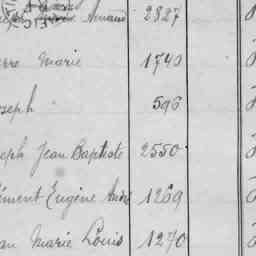 Armand 2827
erre Marie 1740
oseph 596
seph Jean Baptiste 2550
ément Eugène André 1269
an Marie Louis 1270